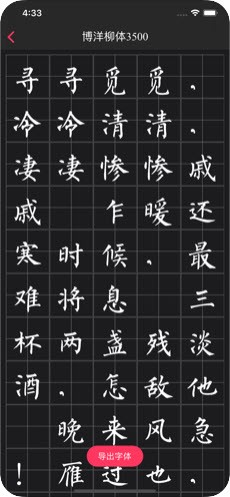 4:33
博洋柳体3500
寻寻觅觅，
冷冷清清，
凄凄惨惨戚
戚 乍暖还
寒时候，最
难将息 三
杯两盏残淡
酒，怎敌他
晚来风急
！雁过也，
导出字体